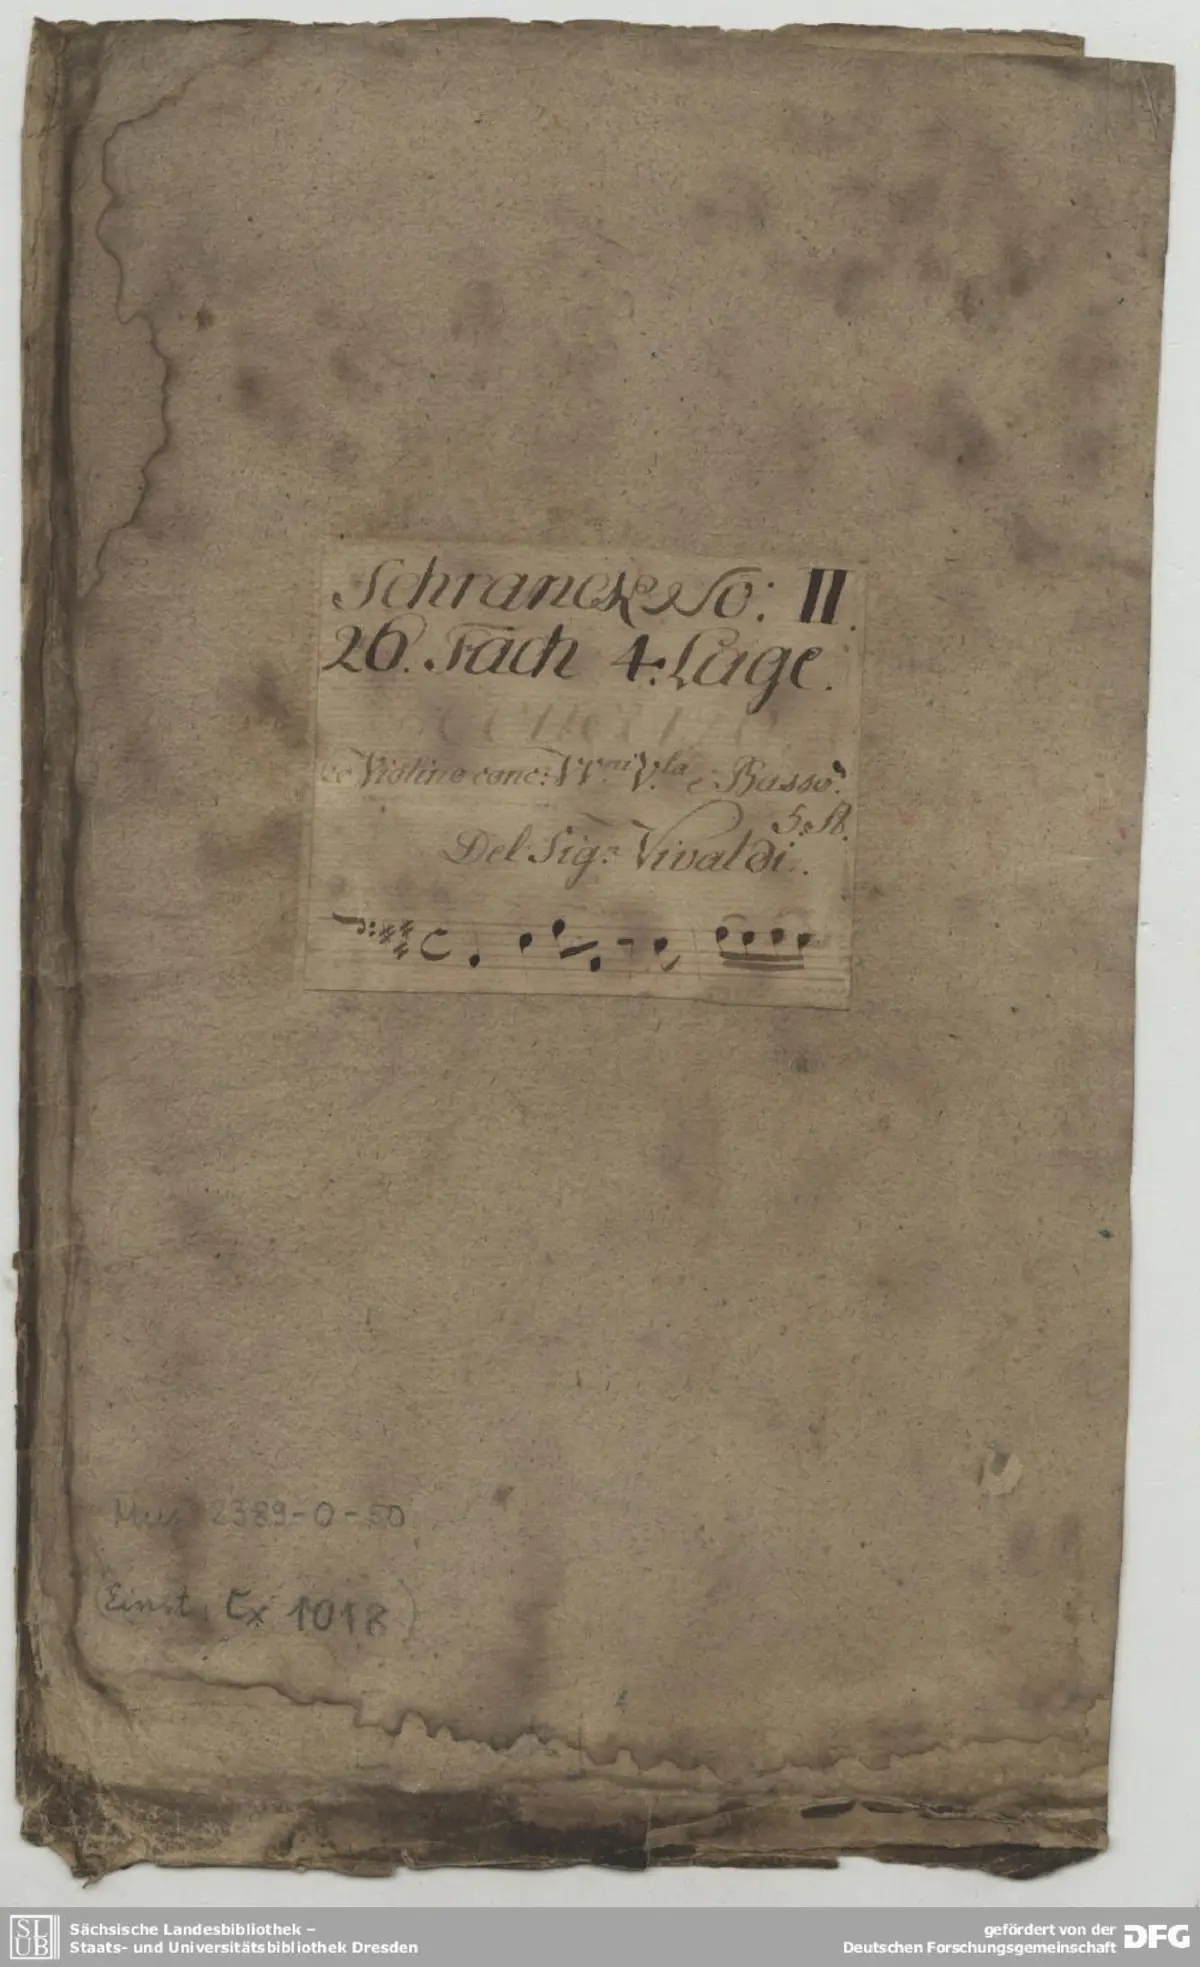 Schranck No: II.
26. Fach 4. Lage.
Concerto
co Violino conc: VVni V.la e Basso.
5. St.
Del Sigr. Vivaldi.
Mus 2389-O-50
(Einst. Cx 1018)
SLUB
Sächsische Landesbibliothek –
Staats- und Universitätsbibliothek Dresden
gefördert von der
Deutschen Forschungsgemeinschaft
DFG